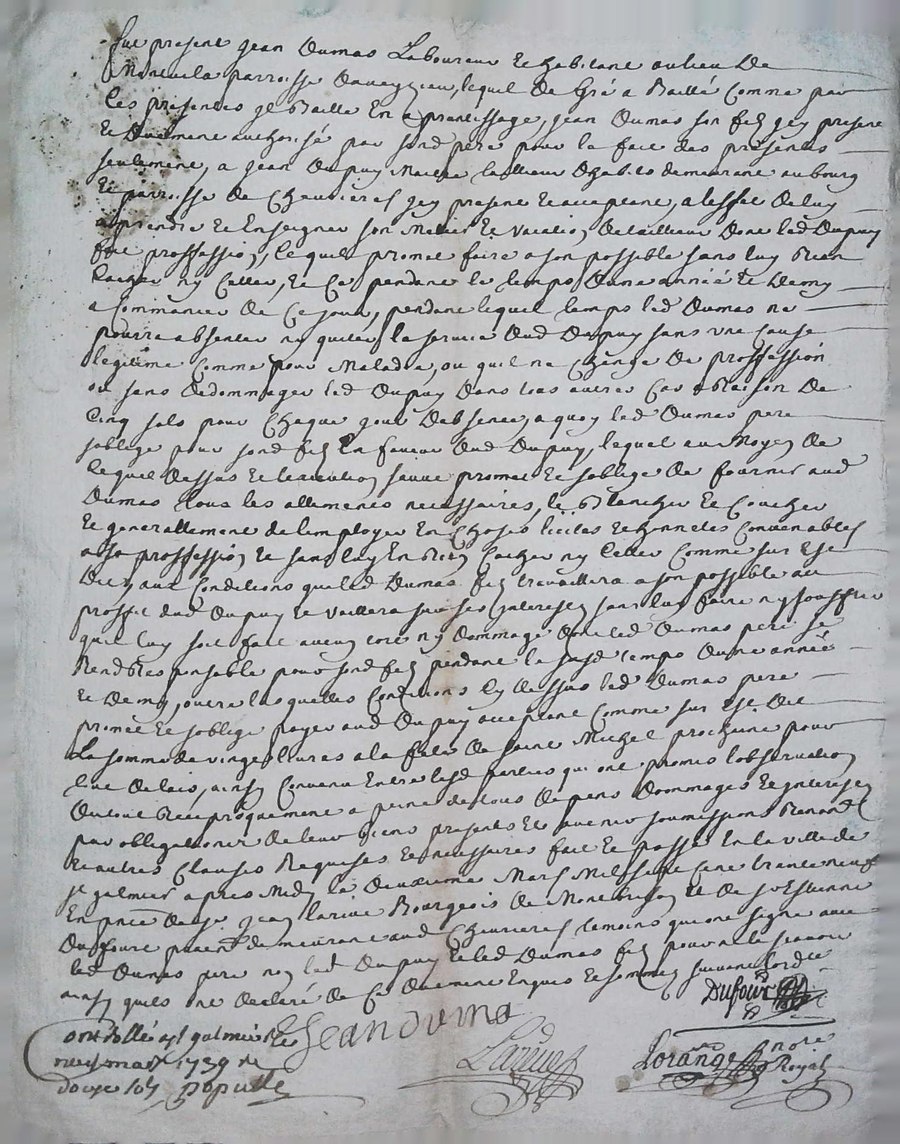 fut present jean Dumas Laboureur et habitant au lieu de
parroisse Daveyzieu, lequel de gré a Baillé comme par
les presentes il Baille En aprantissage, jean Dumas son fils icy present
et Duement authorisé par sond pere pour le fait des presentes
seulement, a jean Dupuy Maitre tailleur dhabits demeurant au bourg
et parroisse de Chevrieres icy present et acceptant, a leffet de luy
aprendre et Enseigner son Metier et vacation de tailleur dont led Dupuy
fait proffession, lequel promet faire a son possible sans luy Rien
cacher ny celler, et ce pendant le temps dune année et demy
a commancer de ce jour, pendant lequel temps led Dumas ne
pourra absenter ny quiter le service dud Dupuy sans une cause
legitime comme pour Maladie, ou quil ne change de proffession
ou sans dedommager led Dupuy dans tous autres cas a Raison de
cinq sols pour chaque jour dabsence, a quoy led Dumas pere
soblige pour sond fils En faveur dud Dupuy, lequel au Moyen de
lequel dessus et promet et soblige de fournir aud
Dumas tous les alliments necessaires, le Blanchir et coucher
et generallement de lemployer En choses licites et honnetes convenables
a sa proffession et sans luy En Rien cacher ny celler comme sur est
dit, aux conditions que led Dumas fils travaillera a son possible au
proffit dud Dupuy et vaillera sur ses interests sans luy faire ny souffrir
quil luy soit fait aucun tort ny dommage dont led Dumas pere se
Rend Responsable pour sond fils pendant le susd temps dune année
et demy, outre lesquelles conditions cy dessus led Dumas pere
promet et soblige payer aud Dupuy acceptant comme sur est dit
La somme de vingt livres a la fete de saint Michel prochaine pour
tout delais, ainsy convenu Entre lesd parties qui ont promis lobservation
du tout Reciproquement a peine de tous depens dommages et interests
par obligation de leur biens presents et avenir soumissions Renonon
et autres clauses Requises et necessaires fait et passé En la ville de
st galmier apres Midy le deuxieme Mars Mil sept cent trante neuf
En pnce de sr jean larive Bourgeois de Montbrison et de sr Estienne
Dufour demeurant aud Chevrieres temoins qui ont signé avec
led Dumas pere non led Dupuy et led Dumas fils pour ne le scavoir
ainsy quils ont declaré de ce duement Enquis et sommés suivant lord ce
Dufour
Jean dumas
Larive
Lorange notre Royal
Controllé a st galmier le
neuf mars 1739 Rc
douze sols populle